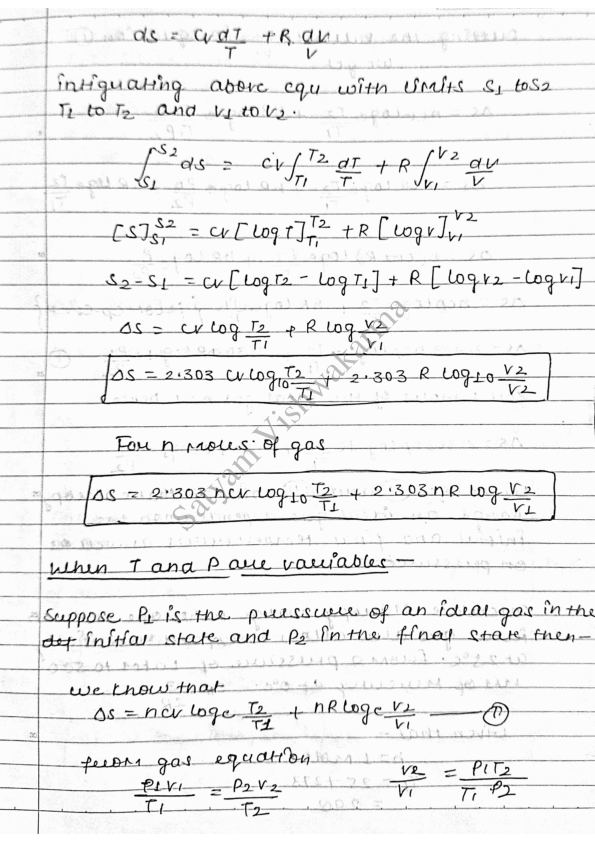 dS = Cv dT/T + R dV/V
intiguating above equ with limits S1 to S2
T1 to T2 and V1 to V2.
∫S1^S2 dS = Cv ∫T1^T2 dT/T + R ∫V1^V2 dV/V
[S]S1^S2 = Cv [log T]T1^T2 + R [log V]V1^V2
S2 - S1 = Cv [log T2 - log T1] + R [log V2 - log V1]
ΔS = Cv log T2/T1 + R log V2/V1
ΔS = 2.303 Cv log10 T2/T1 + 2.303 R log10 V2/V2
For n moles of gas
ΔS = 2.303 nCv log10 T2/T1 + 2.303 nR log V2/V1
when T and P are variables —
Suppose P1 is the pressure of an ideal gas in the
initial state and P2 in the final state then—
we know that
ΔS = nCv loge T2/T1 + nR loge V2/V1 —— ①
from gas equation
P1V1/T1 = P2V2/T2 V2/V1 = P1T2/T1P2
Satyam Vishwakarma